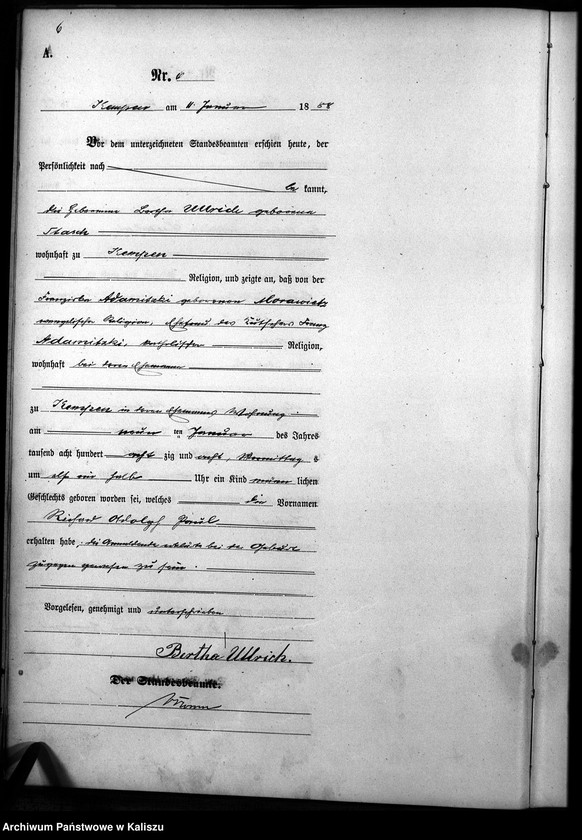 6
A.
Nr. 6
Kempen am 11 Januar 1888
Vor dem unterzeichneten Standesbeamten erschien heute, der
Persönlichkeit nach
be kannt,
die Hebamme Bertha Ullrich geborene
wohnhaft zu Kempen
Religion, und zeigte an, daß von der
Franziska Adamitzki geborenen Morawietz
evangelischer Religion, Ehefrau des Kutschers Franz
Adamitzki, katholischer Religion,
wohnhaft bei deren Ehemann
zu Kempen in deren Ehemannes Wohnung
am neun ten Januar des Jahres
tausend acht hundert acht zig und acht, Vormittag s
um elf ein halb Uhr ein Kind männ lichen
Geschlechts geboren worden sei, welches die Vornamen
Richard Adolph Paul
erhalten habe, die Anmeldende erklärte bei der Geburt
zugegen gewesen zu sein.
Vorgelesen, genehmigt und unterschrieben
Bertha Ullrich.
Der Standesbeamte.
Archiwum Państwowe w Kaliszu